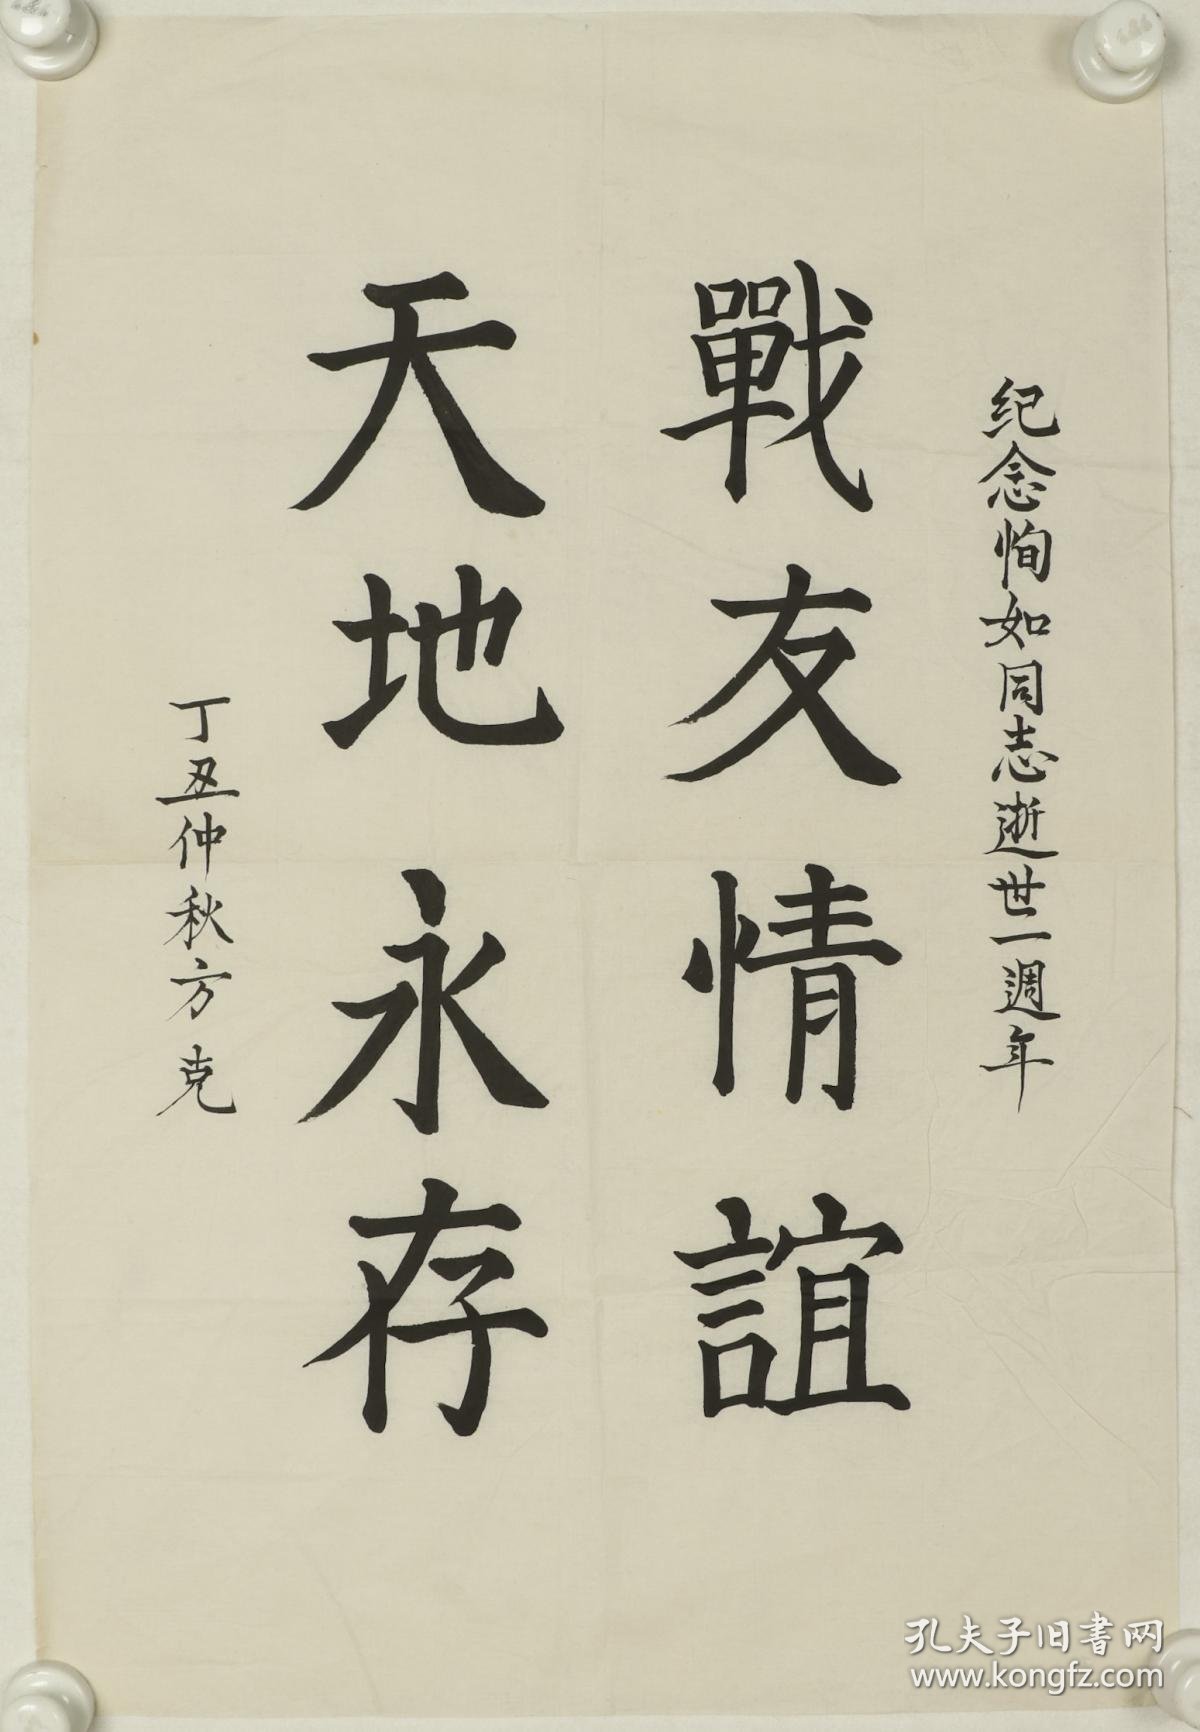 纪念恂如同志逝世一週年
戰友情誼
天地永存
丁丑仲秋方克
孔夫子旧書网
www.kongfz.com